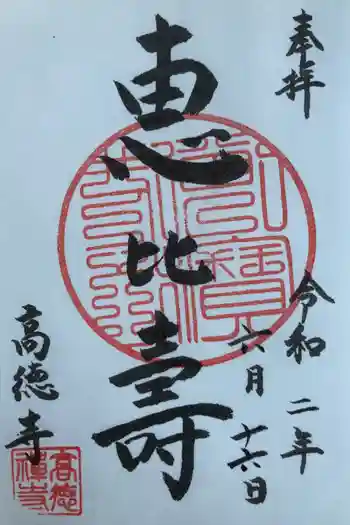 奉拝
令和二年
六月十六日
恵比寿
高徳寺
高徳
禅寺